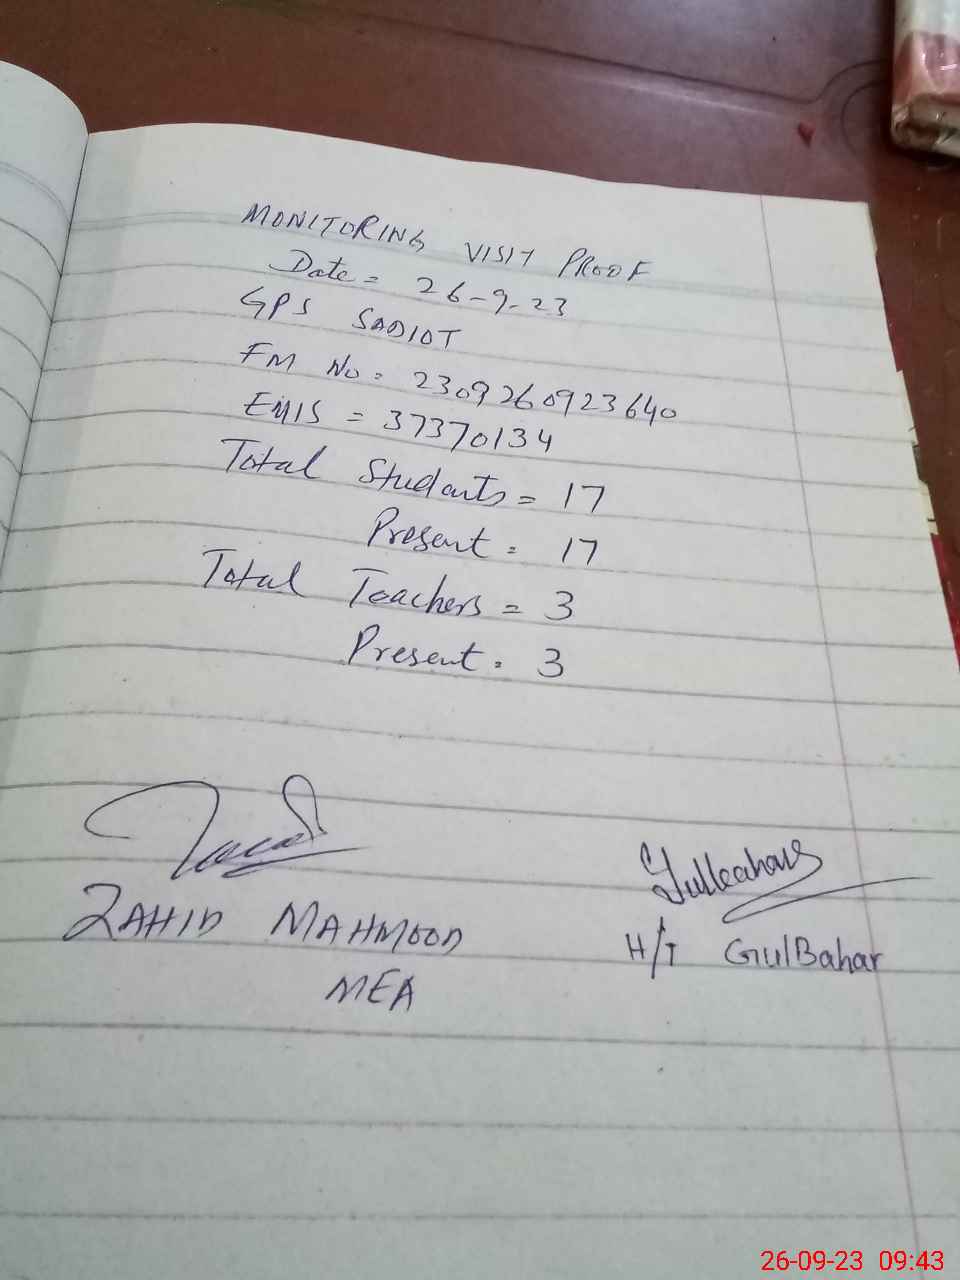 MONITORING VISIT PROOF
Date = 26-9-23
GPS SADIOT
FM No = 2309260923640
EMIS = 37370134
Total Students = 17
Present = 17
Total Teachers = 3
Present = 3
ZAHID MAHMOOD
MEA
H/T GulBahar
26-09-23 09:43